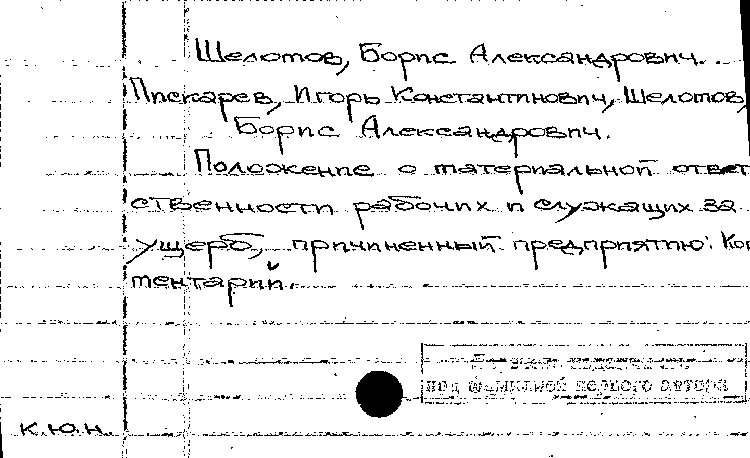 Шеломов, Борис Александрович.
Пискарев, Игорь Константинович, Шеломов,
Борис Александрович.
Положение о материальной ответ
ственности рабочих и служащих за
ущерб, причиненный предприятию: Ком
ментарий.
под фамилией первого автора
К.Ю.Н.